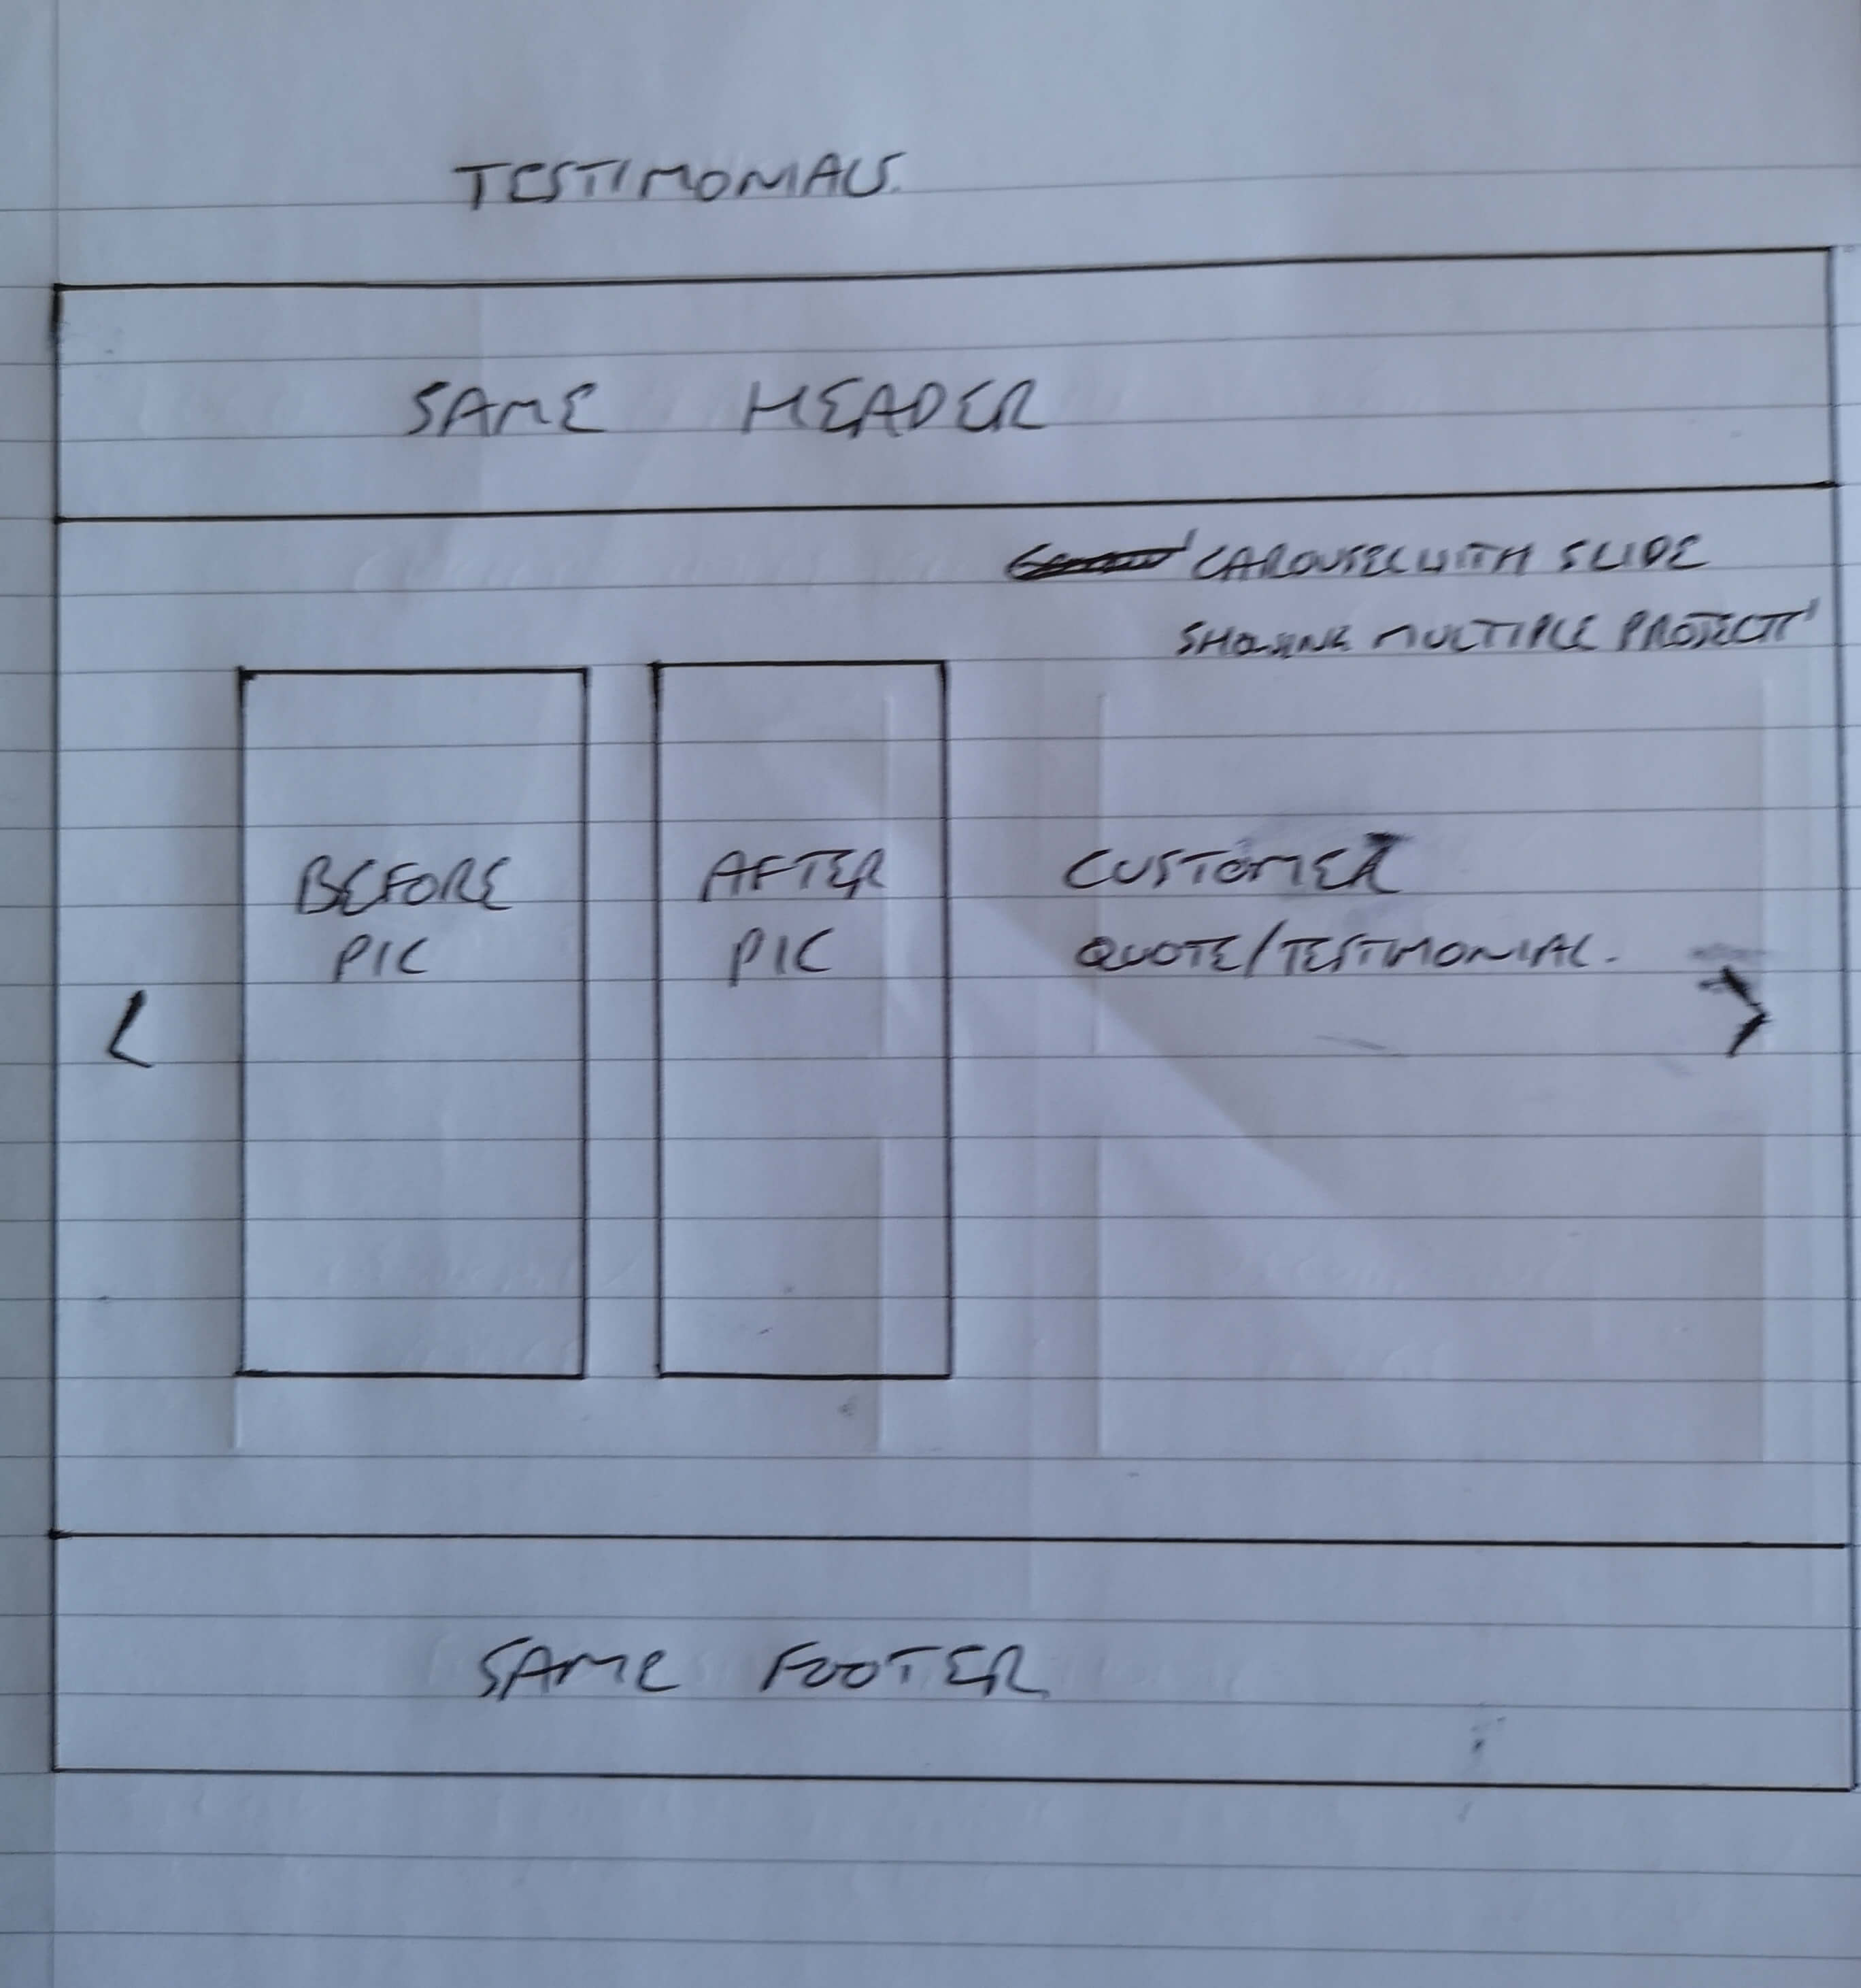 TESTIMONIALS.
SAME HEADER
'CAROUSEL WITH SLIDE
SHOWING MULTIPLE PROJECTS'
BEFORE
PIC
AFTER
PIC
CUSTOMER
QUOTE/TESTIMONIAL.
<
>
SAME FOOTER